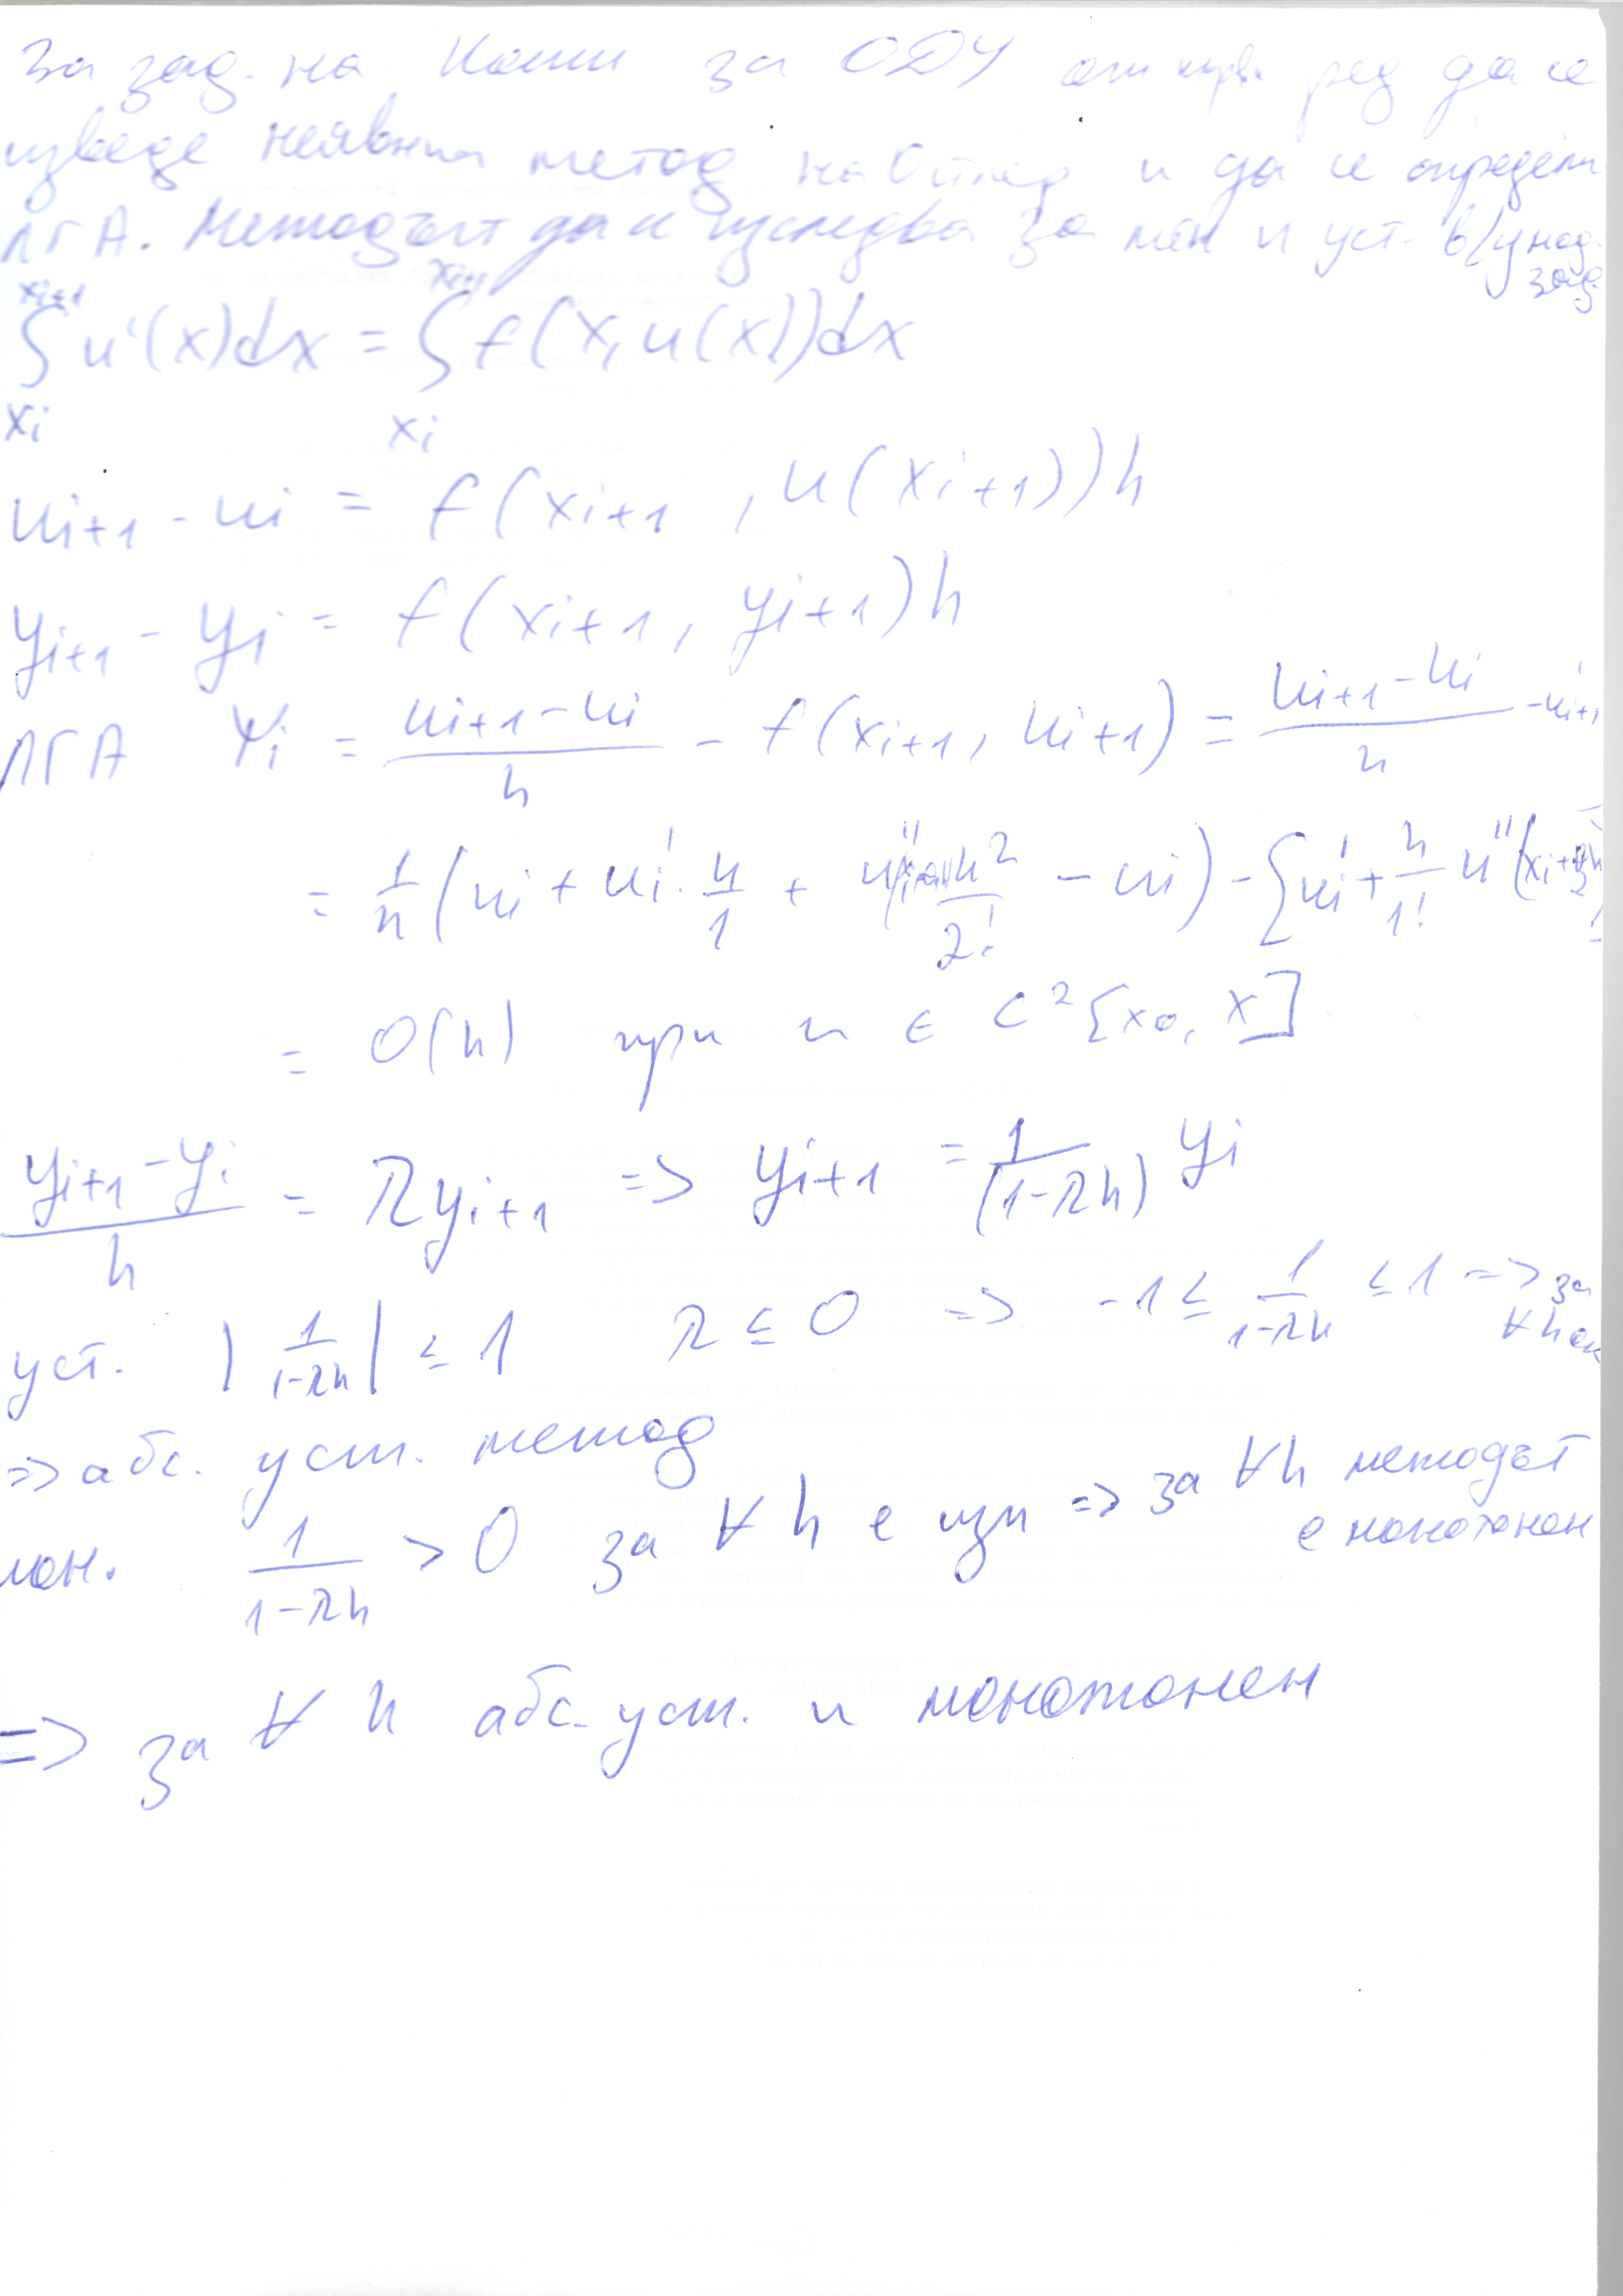 За зад. на Коши за ОДУ от първи ред да се
изведе неявния метод на Ойлер и да се определи
ЛГА. Методът да се изследва за мон и уст. в/у мод. зад.
∫_{x_i}^{x_{i+1}} u'(x)dx = ∫_{x_i}^{x_{i+1}} f(x, u(x))dx
u_{i+1} - u_i = f(x_{i+1}, u(x_{i+1}))h
y_{i+1} - y_i = f(x_{i+1}, y_{i+1})h
ЛГА Ψ_i = (u_{i+1} - u_i)/h - f(x_{i+1}, u_{i+1}) = (u_{i+1} - u_i)/h - u'_{i+1}
= 1/h (u_i + u_i'. h/1 + h²/2! - u_i) - [u_i' + h/1! u''(x_i +
= O(h) при u ∈ C²[x_0, X]
(y_{i+1} - y_i)/h = λy_{i+1} => y_{i+1} = 1/(1-λh) y_i
уст. |1/(1-λh)| ≤ 1 λ ≤ 0 => -1 ≤ 1/(1-λh) ≤ 1 => за ∀ h
=> абс. уст. метод
мон. 1/(1-λh) > 0 за ∀ h е изп => за ∀h методът е монотонен
=> за ∀ h абс. уст. и монотонен